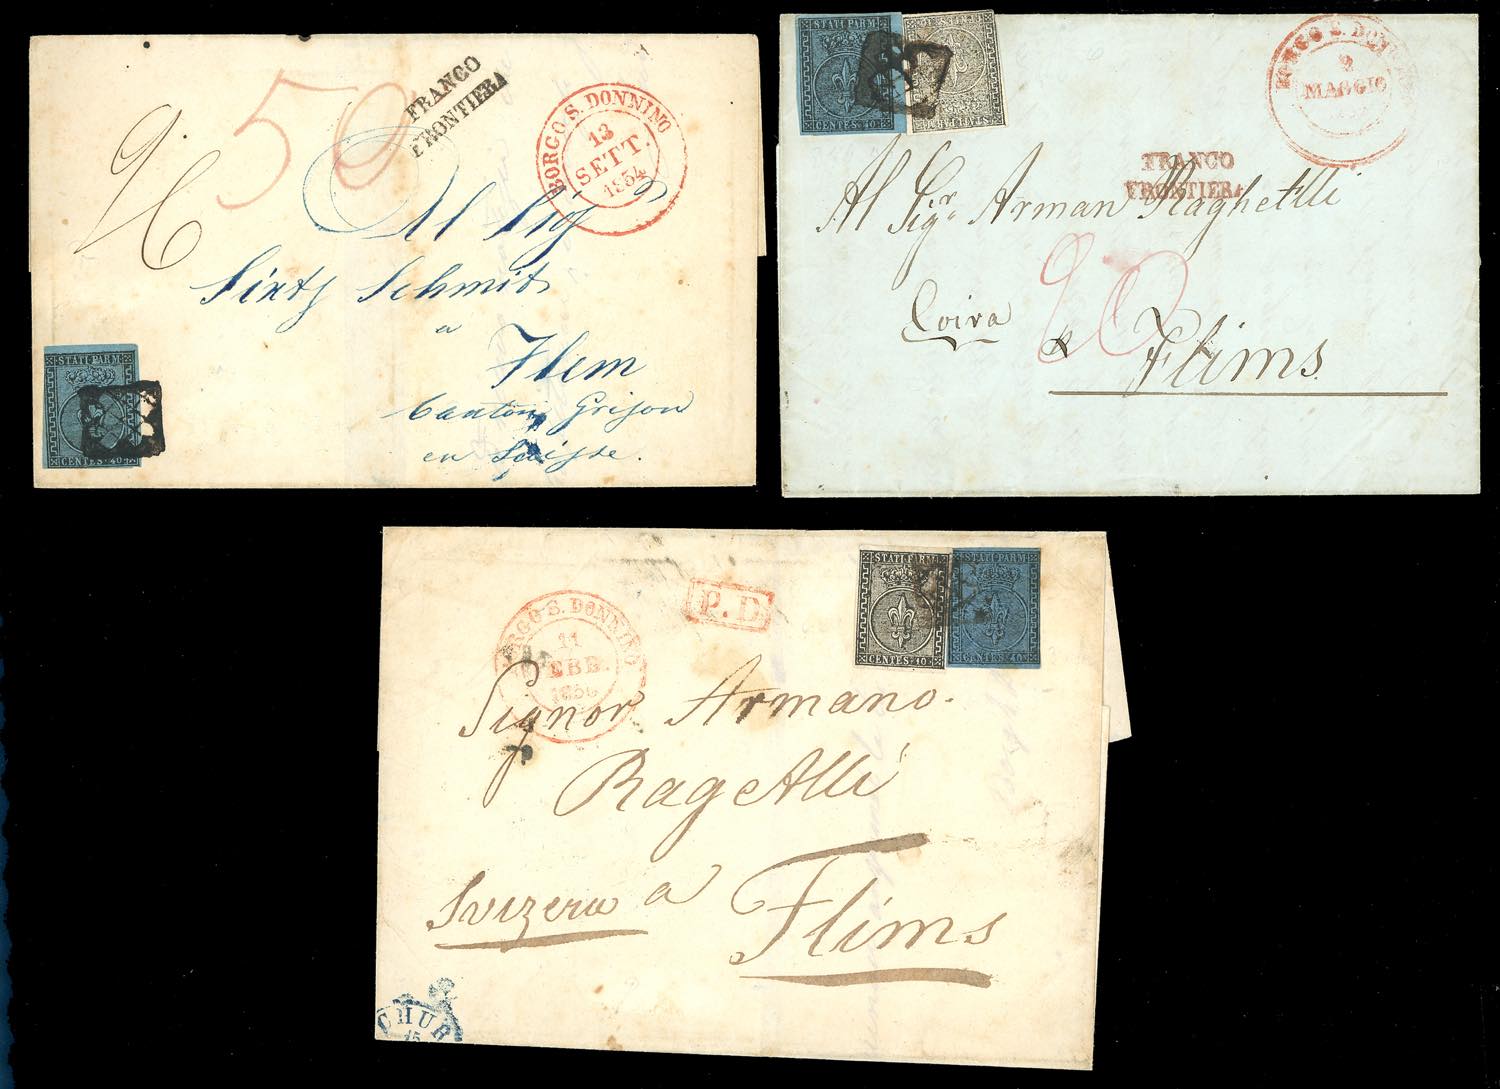 50
26
FRANCO
FRONTIERA
BORGO S. DONNINO
13
SETT.
1854
Al Sig
Sixtz Schmit
a
Flem
Canton Grison
en Suisse.
STATI PARM
CENTES. 40
STATI PARM
CENTES. 40
STATI PARM
CENTES. 10
BORGO S. DONNINO
9
MAGGIO
FRANCO
FRONTIERA
Al Sigr. Arman Raghettli
20
Coira a Flims
BORGO S. DONNINO
11
FEBB.
1856
P.D
STATI PARM
CENTES. 10
STATI PARM
CENTES. 40
Signor Armano
Ragettli
Svizera a Flims
CHUR
15